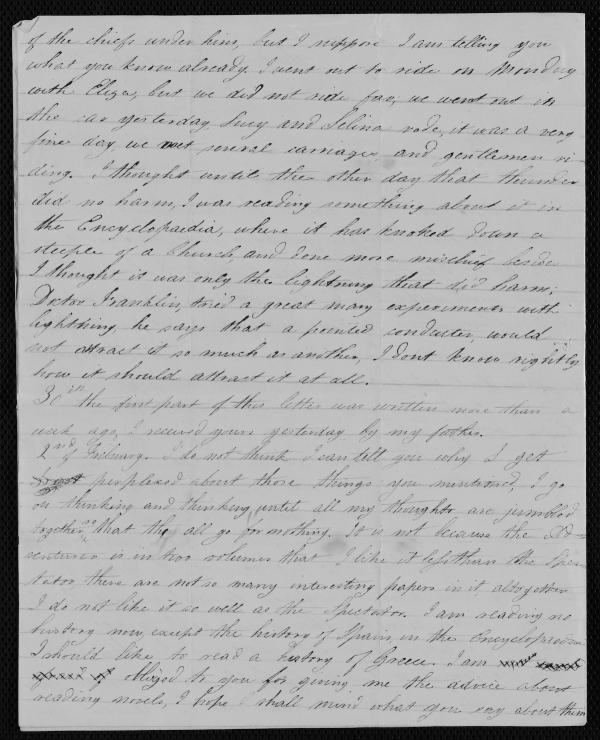 of the chiefs under him, but I suppose I am telling you
what you know already. I went out to ride on Monday
with Eliza, but we did not ride far, we went out in
the car yesterday, Lucy and Selina rode, it was a very
fine day we met several carriages and gentlemen ri-
ding. I thought until the other day that thunder
did no harm, I was reading something about it in
the Encyclopaedia, where it has knoked down a
steeple of a Church, and done more mischief beside
I thought it was only the lightning that did harm;
Doctor Franklin, tried a great many experiments with
lightning, he says that a pointed conducter, would
not attract it so much as another, I dont know rightly
how it should attract it at all.
30th the first part of this letter was written more than a
week ago, I received yours yesterday by my father.
2nd of Febuary. I do not think I can tell you why I get
perplexed about those things you mentioned, I go
on thinking and thinking until all my thoughts are jumbled
together, so that they all go for nothing. It is not because the Ad=
venturer is in two volumes that I like it less than the Spec
tator there are not so many interesting papers in it, altogether
I do not like it so well as the Spectator. I am reading no
history now, except the history of Spain, in the Encyclopaedia
I should like to read a history of Greece. I am
obliged to you for giving me the advice about
reading novels, I hope I shall mind what you say about them